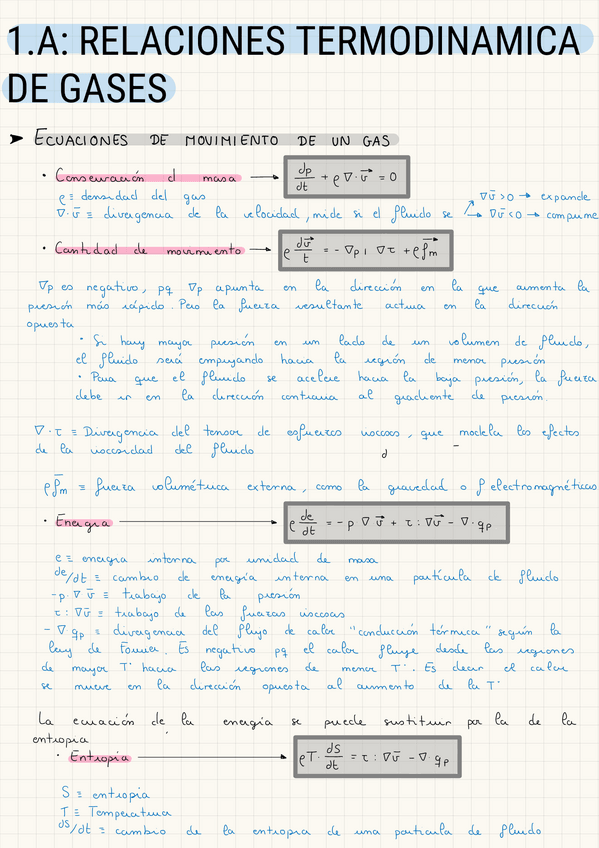 1.A: RELACIONES TERMODINAMICA
DE GASES
➤ ECUACIONES DE MOVIMIENTO DE UN GAS
• Conservación d masa → dρ/dt + ρ ∇·v⃗ = 0
ρ ≡ densidad del gas
∇·v̄ ≡ divergencia de la velocidad, mide si el fluido se
∇v̄ > 0 → expande
∇v̄ < 0 → comprime
• Cantidad de movimiento → ρ dv⃗/t = - ∇p1 ∇τ + ρf⃗m
∇p es negativo, pq ∇p apunta en la dirección en la que aumenta la
presión más rápido. Pero la fuerza resultante actua en la dirección
opuesta
• Si hay mayor presión en un lado de un volumen de fluido,
el fluido será empujando hacia la región de menor presión
• Para que el fluido se acelere hacia la baja presión, la fuerza
debe ir en la dirección contraria al gradiente de presión.
∇·τ ≡ Divergencia del tensor de esfuerzos viscosos, que modela los efectos
de la viscosidad del fluido
ρf̄m ≡ fuerza volumétrica externa, como la gravedad o f electromagnéticas
• Energía → ρ de/dt = -p ∇ v⃗ + τ : ∇v⃗ - ∇·qp
e ≡ energia interna por unidad de masa
de/dt ≡ cambio de energía interna en una partícula de fluido
-p·∇ v̄ ≡ trabajo de la presión
τ : ∇v̄ ≡ trabajo de las fuerzas viscosas
- ∇ qp ≡ divergencia del flujo de calor "conducción térmica" según la
ley de Fourier. Es negativo pq el calor fluye desde las regiones
de mayor Tª hacia las regiones de menor Tª. Es decir el calor
se mueve en la dirección opuesta al aumento de la Tª
La ecuación de la energía se puede sustituir por la de la
entropia
• Entropía → ρT· dS/dt = τ : ∇v̄ - ∇· qp
S ≡ entropia
T ≡ Temperatura
dS/dt ≡ cambio de la entropia de una particula de fluido